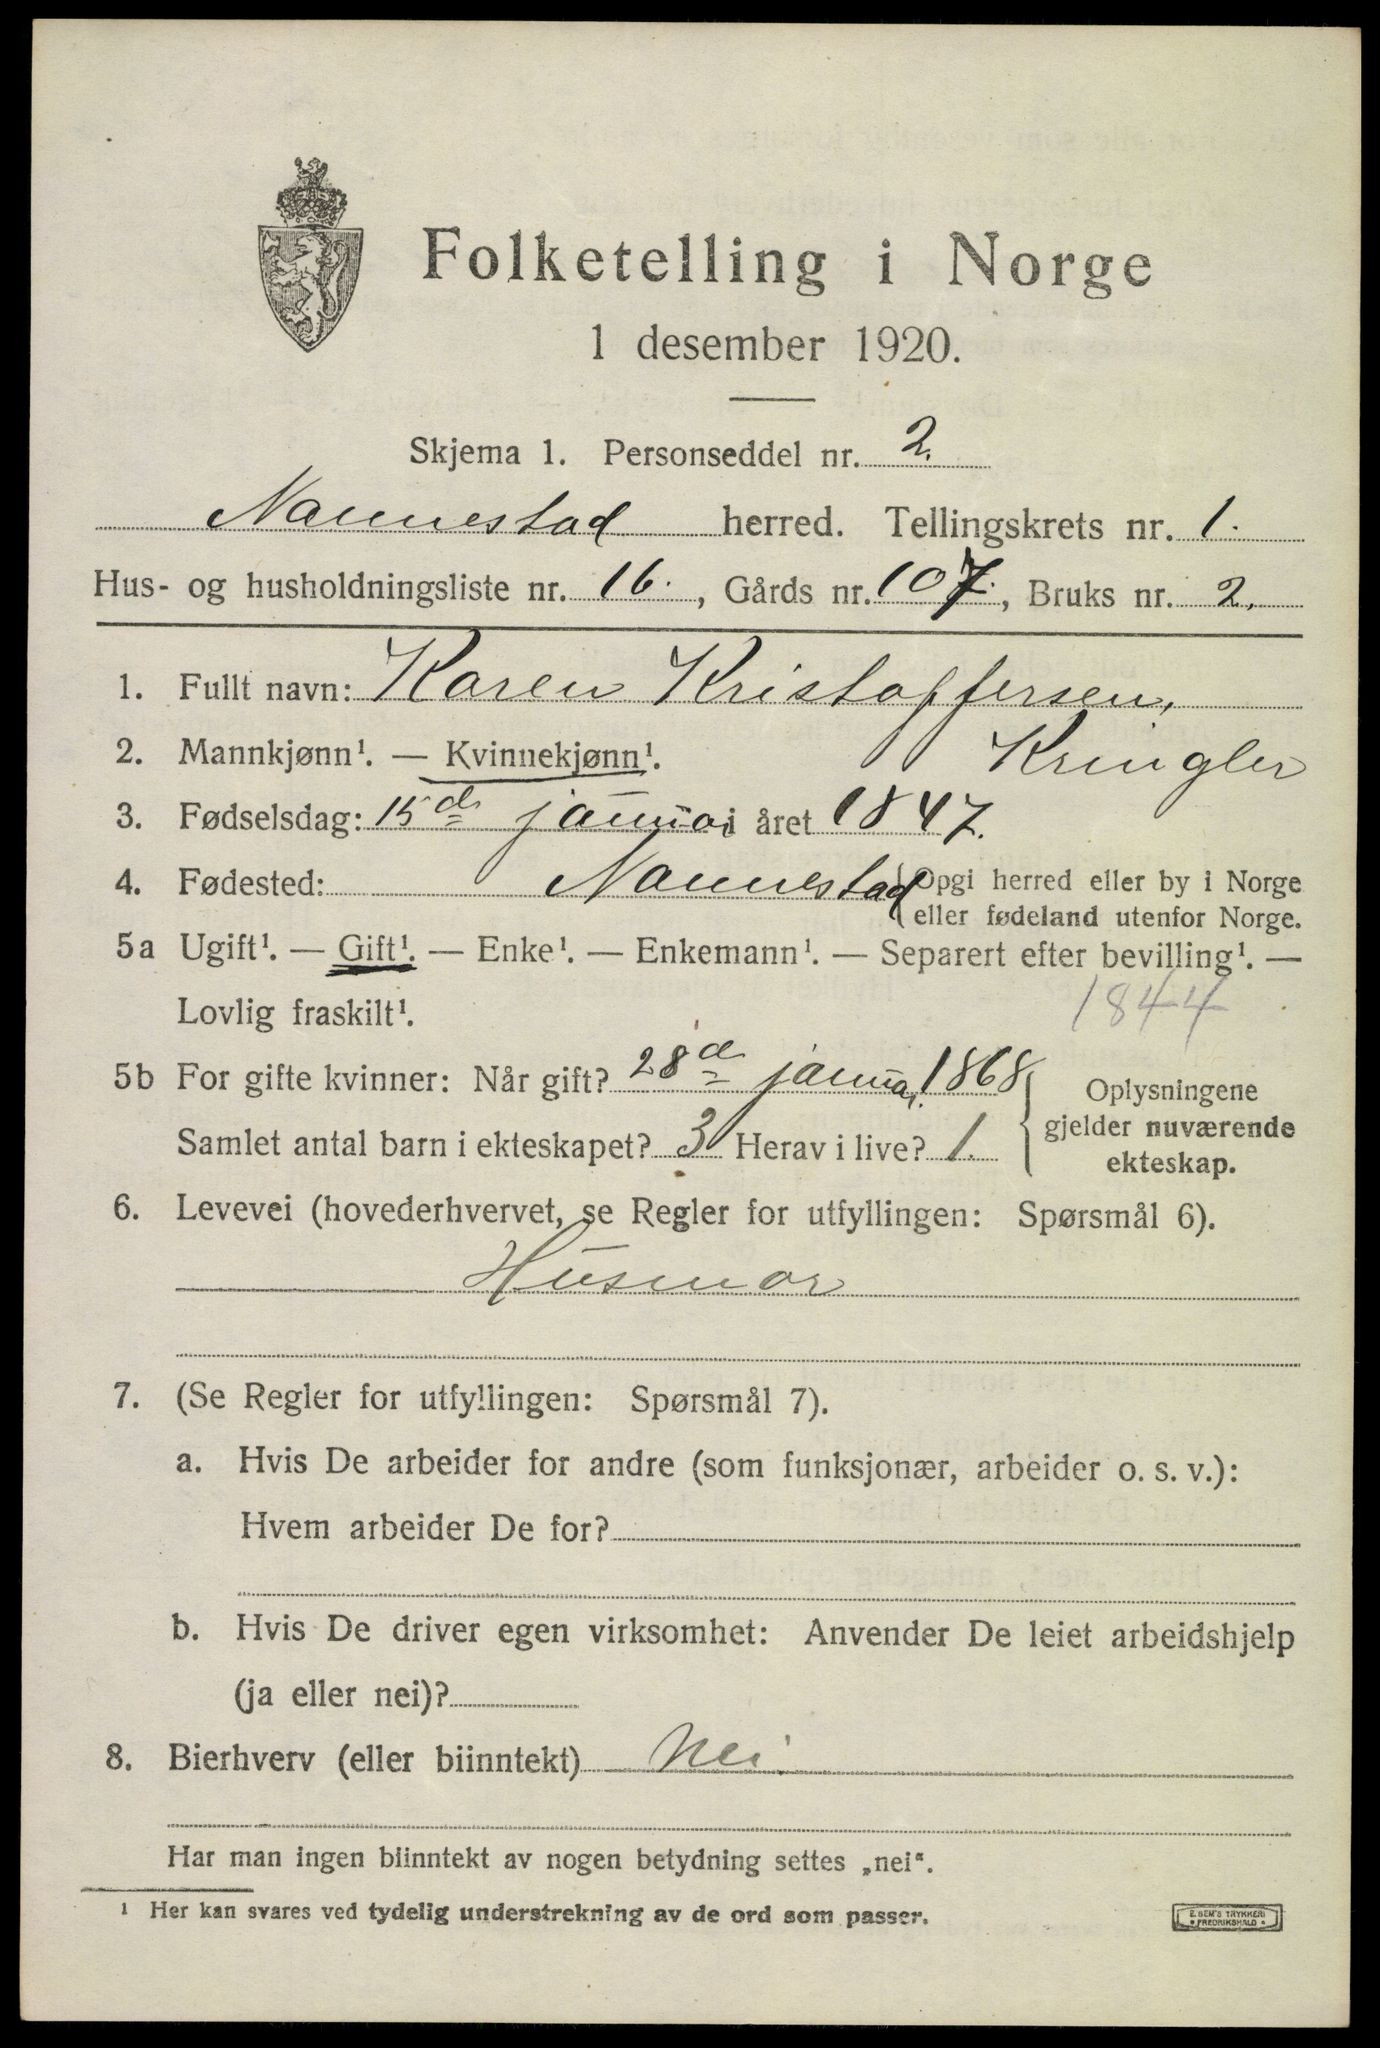 Folketelling i Norge
1 desember 1920.
Skjema 1. Personseddel nr. 2.
Nannestad herred. Tellingskrets nr. 1.
Hus- og husholdningsliste nr. 16., Gårds nr. 107., Bruks nr. 2.
1. Fullt navn: Karen Kristoffersen,
2. Mannkjønn¹. — Kvinnekjønn¹. Kringler
3. Fødselsdag: 15de januar året 1847.
4. Fødested: Nannestad (Opgi herred eller by i Norge
eller fødeland utenfor Norge.
5a Ugift¹. — Gift¹. — Enke¹. — Enkemann¹. — Separert efter bevilling¹. —
Lovlig fraskilt¹. 1844
5b For gifte kvinner: Når gift? 28de januar 1868 Oplysningene
Samlet antal barn i ekteskapet? 3 Herav i live? 1. gjelder nuværende
ekteskap.
6. Levevei (hovederhvervet, se Regler for utfyllingen: Spørsmål 6).
Husmor
7. (Se Regler for utfyllingen: Spørsmål 7).
a. Hvis De arbeider for andre (som funksjonær, arbeider o. s. v.):
Hvem arbeider De for?
b. Hvis De driver egen virksomhet: Anvender De leiet arbeidshjelp
(ja eller nei)?
8. Bierhverv (eller biinntekt) Nei.
Har man ingen biinntekt av nogen betydning settes „nei“.
¹ Her kan svares ved tydelig understrekning av de ord som passer.
E. SEM'S TRYKKERI
• FREDRIKSHALD •